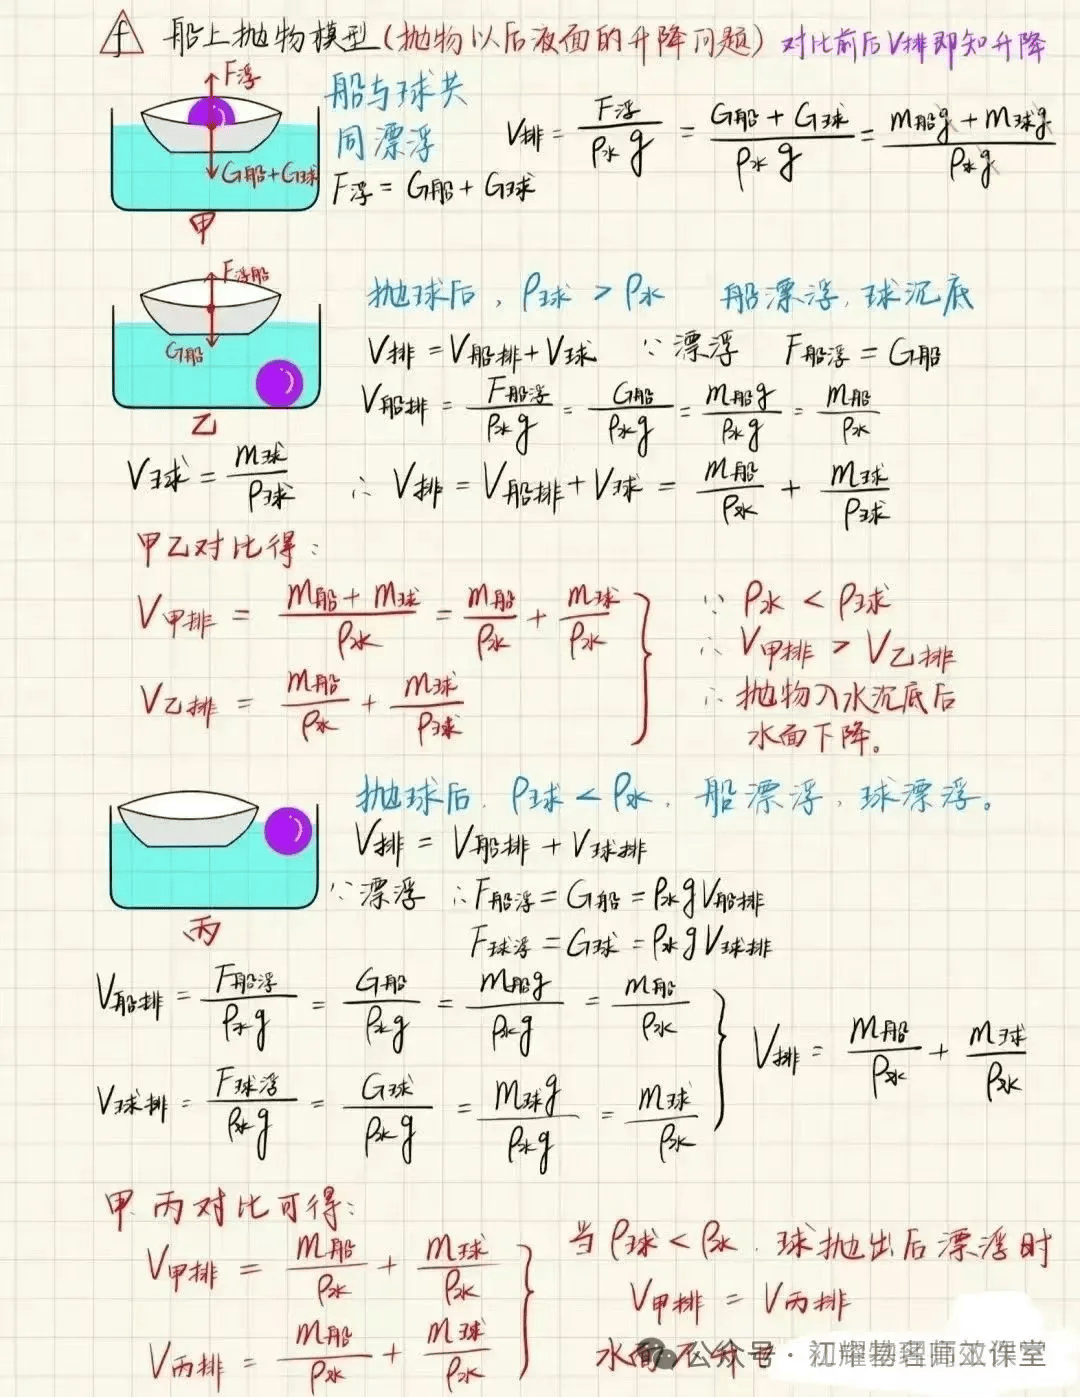 f 船上抛物模型(抛物以后液面的升降问题) 对比前后V排即知升降
F浮
G船+G球
甲
船与球共
同漂浮
F浮 = G船 + G球
V排 = F浮/ρ水g = (G船 + G球)/ρ水g = (m船g + m球g)/ρ水g
F浮船
G船
乙
抛球后, ρ球 > ρ水 船漂浮, 球沉底
V排 = V船排 + V球 ∵漂浮 F船浮 = G船
V船排 = F船浮/ρ水g = G船/ρ水g = m船g/ρ水g = m船/ρ水
V球 = m球/ρ球 ∴ V排 = V船排 + V球 = m船/ρ水 + m球/ρ球
甲乙对比得:
V甲排 = (m船 + m球)/ρ水 = m船/ρ水 + m球/ρ水
V乙排 = m船/ρ水 + m球/ρ球
∵ ρ水 < ρ球
∴ V甲排 > V乙排
∴ 抛物入水沉底后
水面下降。
丙
抛球后, ρ球 < ρ水, 船漂浮, 球漂浮。
V排 = V船排 + V球排
∵漂浮 ∴F船浮 = G船 = ρ水gV船排
F球浮 = G球 = ρ水gV球排
V船排 = F船浮/ρ水g = G船/ρ水g = m船g/ρ水g = m船/ρ水
V球排 = F球浮/ρ水g = G球/ρ水g = m球g/ρ水g = m球/ρ水
V排 = m船/ρ水 + m球/ρ水
甲.丙对比可得:
V甲排 = m船/ρ水 + m球/ρ水
V丙排 = m船/ρ水 + m球/ρ水
当ρ球 < ρ水, 球抛出后漂浮时
V甲排 = V丙排
水面不升
公众号 · 师效课堂